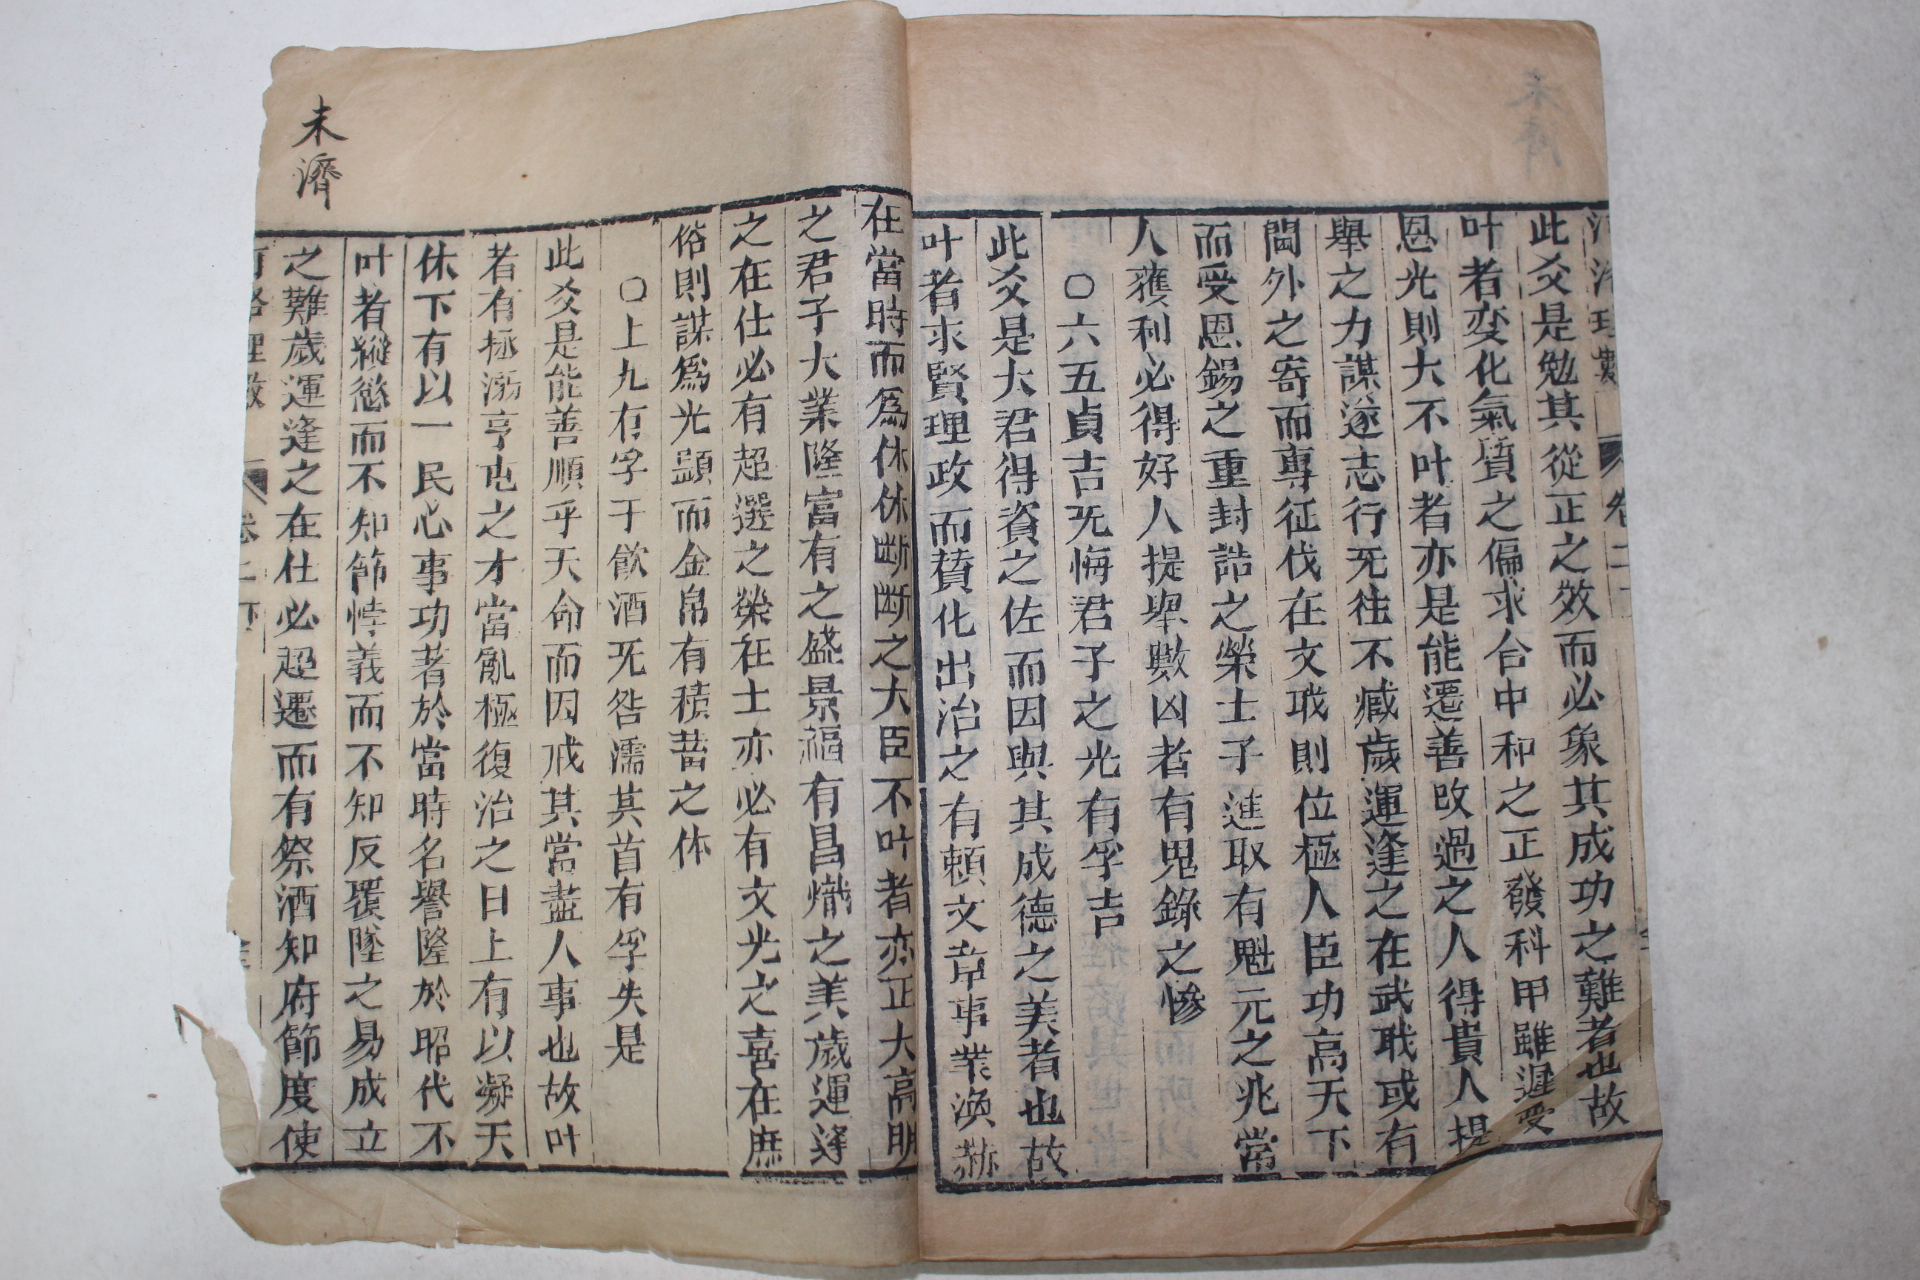 未濟
河洛理數 卷二
此爻是勉其從正之效而必象其成功之難者也故
叶者変化氣質之偏求合中和之正發科甲雖遲受
恩光則大不叶者亦是能遷善改過之人得貴人提
舉之力謀遂志行无往不臧歲運逢之在武職或有
閫外之寄而専征伐在文職則位極人臣功高天下
而受恩錫之重封誥之榮士子進取有魁元之兆常
人獲利必得好人提舉數凶者有鬼錄之慘
○六五貞吉无悔君子之光有孚吉
此爻是大君得資之佐而因與其成德之美者也故
叶者求賢理政而賛化出治之有賴文章事業渙赫
在當時而為休休断断之大臣不叶者亦正大高明
之君子大業隆富有之盛景福有昌熾之美歲運逢
之在仕必有超選之榮在士亦必有文光之喜在庶
俗則謀為光顕而金帛有積蓄之休
○上九有孚于飲酒无咎濡其首有孚失是
此爻是能善順乎天命而因戒其當盡人事也故叶
者有拯溺亨屯之才當亂極復治之日上有以凝天
休下有以一民心事功著於當時名譽隆於昭代不
叶者縱慾而不知節悖義而不知反覆墜之易成立
之難歲運逢之在仕必超遷而有祭酒知府節度使